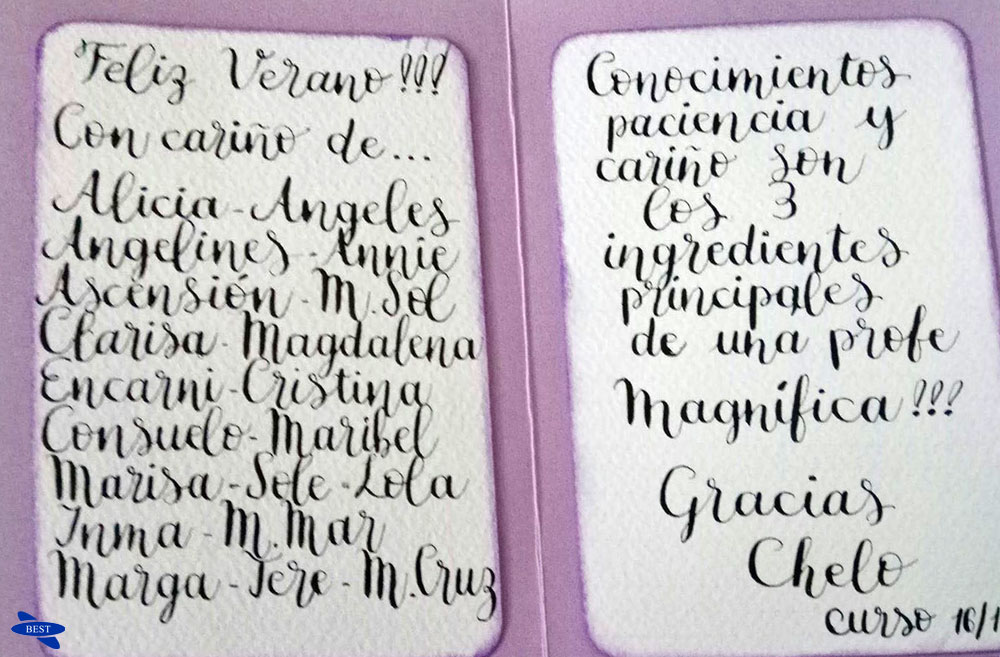 Feliz Verano!!!
Con cariño de...
Alicia - Angeles
Angelines - Annie
Ascensión - M. Sol
Clarisa - Magdalena
Encarni - Cristina
Consuelo - Maribel
Marisa - Sole - Lola
Inma - M. Mar
Marga - Tere - M. Cruz
Conocimientos
paciencia y
cariño son
los 3
ingredientes
principales
de una profe
Magnífica!!!
Gracias
Chelo
curso 16/1
BEST